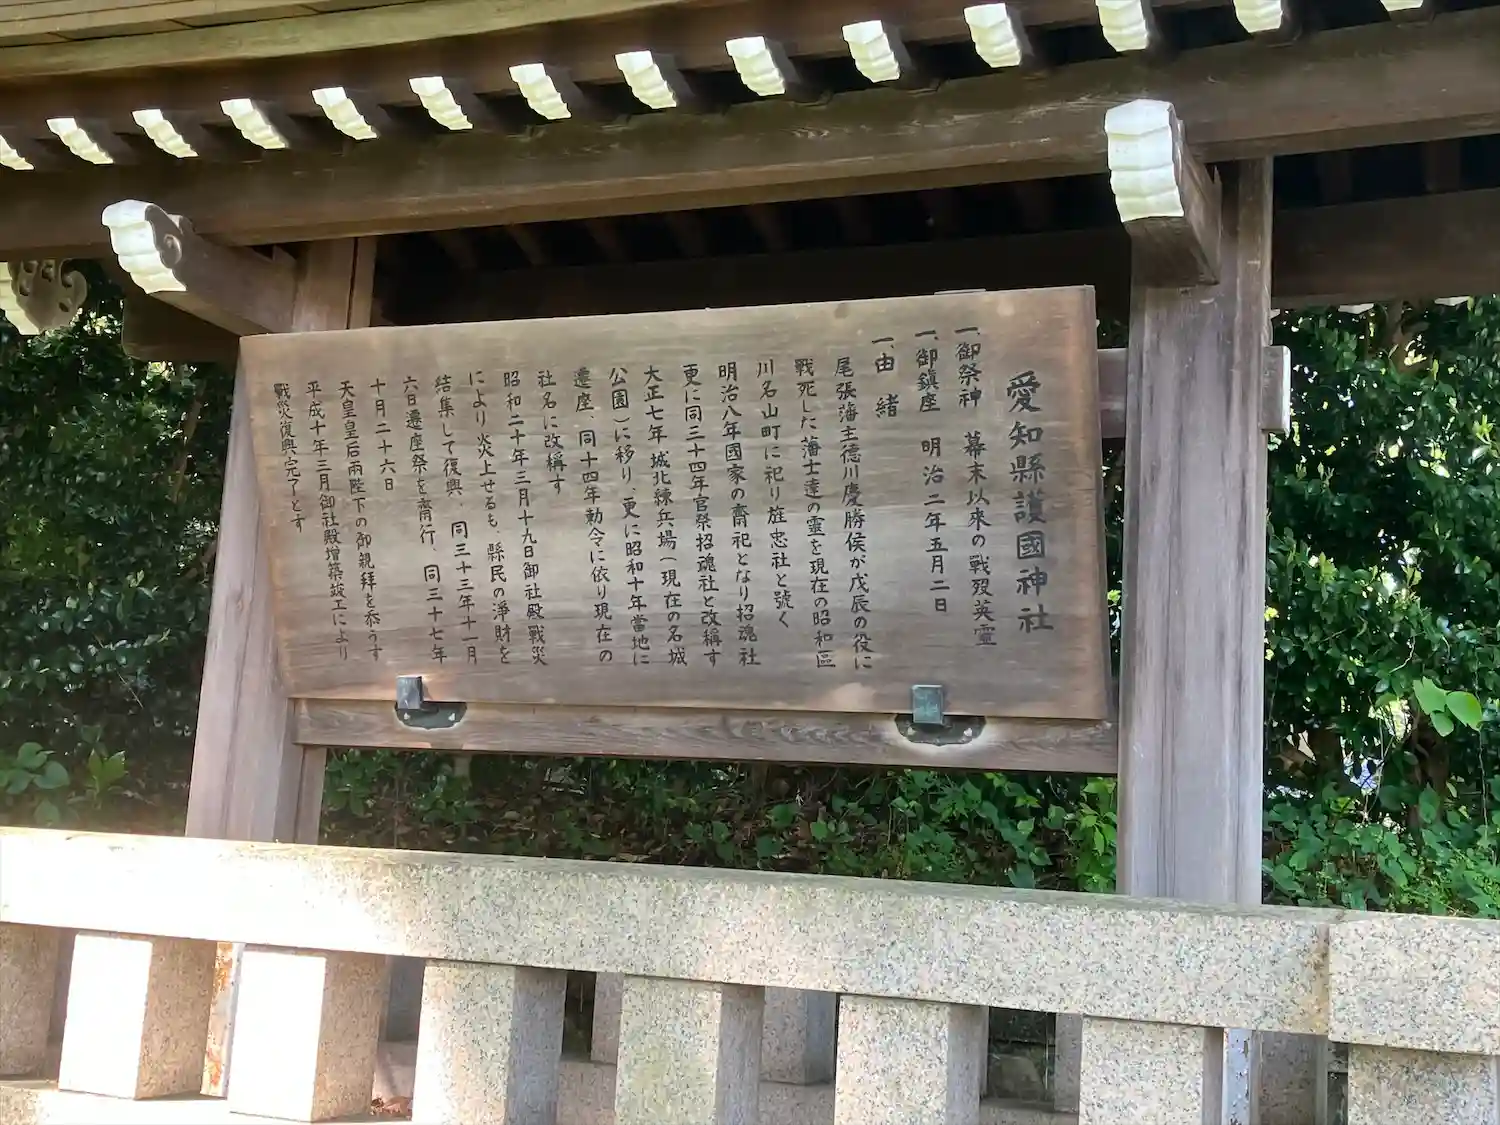 愛知縣護國神社
一、御祭神　幕末以来の戦歿英霊
一、御鎮座　明治二年五月二日
一、由　緒
尾張藩主徳川慶勝侯が戊辰の役に
戦死した藩士達の霊を現在の昭和區
川名山町に祀り旌忠社と號く
明治八年國家の齋祀となり招魂社
更に同三十四年官祭招魂社と改稱す
大正七年城北練兵場（現在の名城
公園）に移り、更に昭和十年當地に
遷座、同十四年勅令に依り現在の
社名に改稱す
昭和二十年三月十九日御社殿戰災
により炎上せるも、縣民の淨財を
結集して復興、同三十三年十一月
六日遷座祭を齋行、同三十七年
十月二十六日
天皇皇后兩陛下の御親拜を忝うす
平成十年三月御社殿増築竣工により
戰災復興完了とす